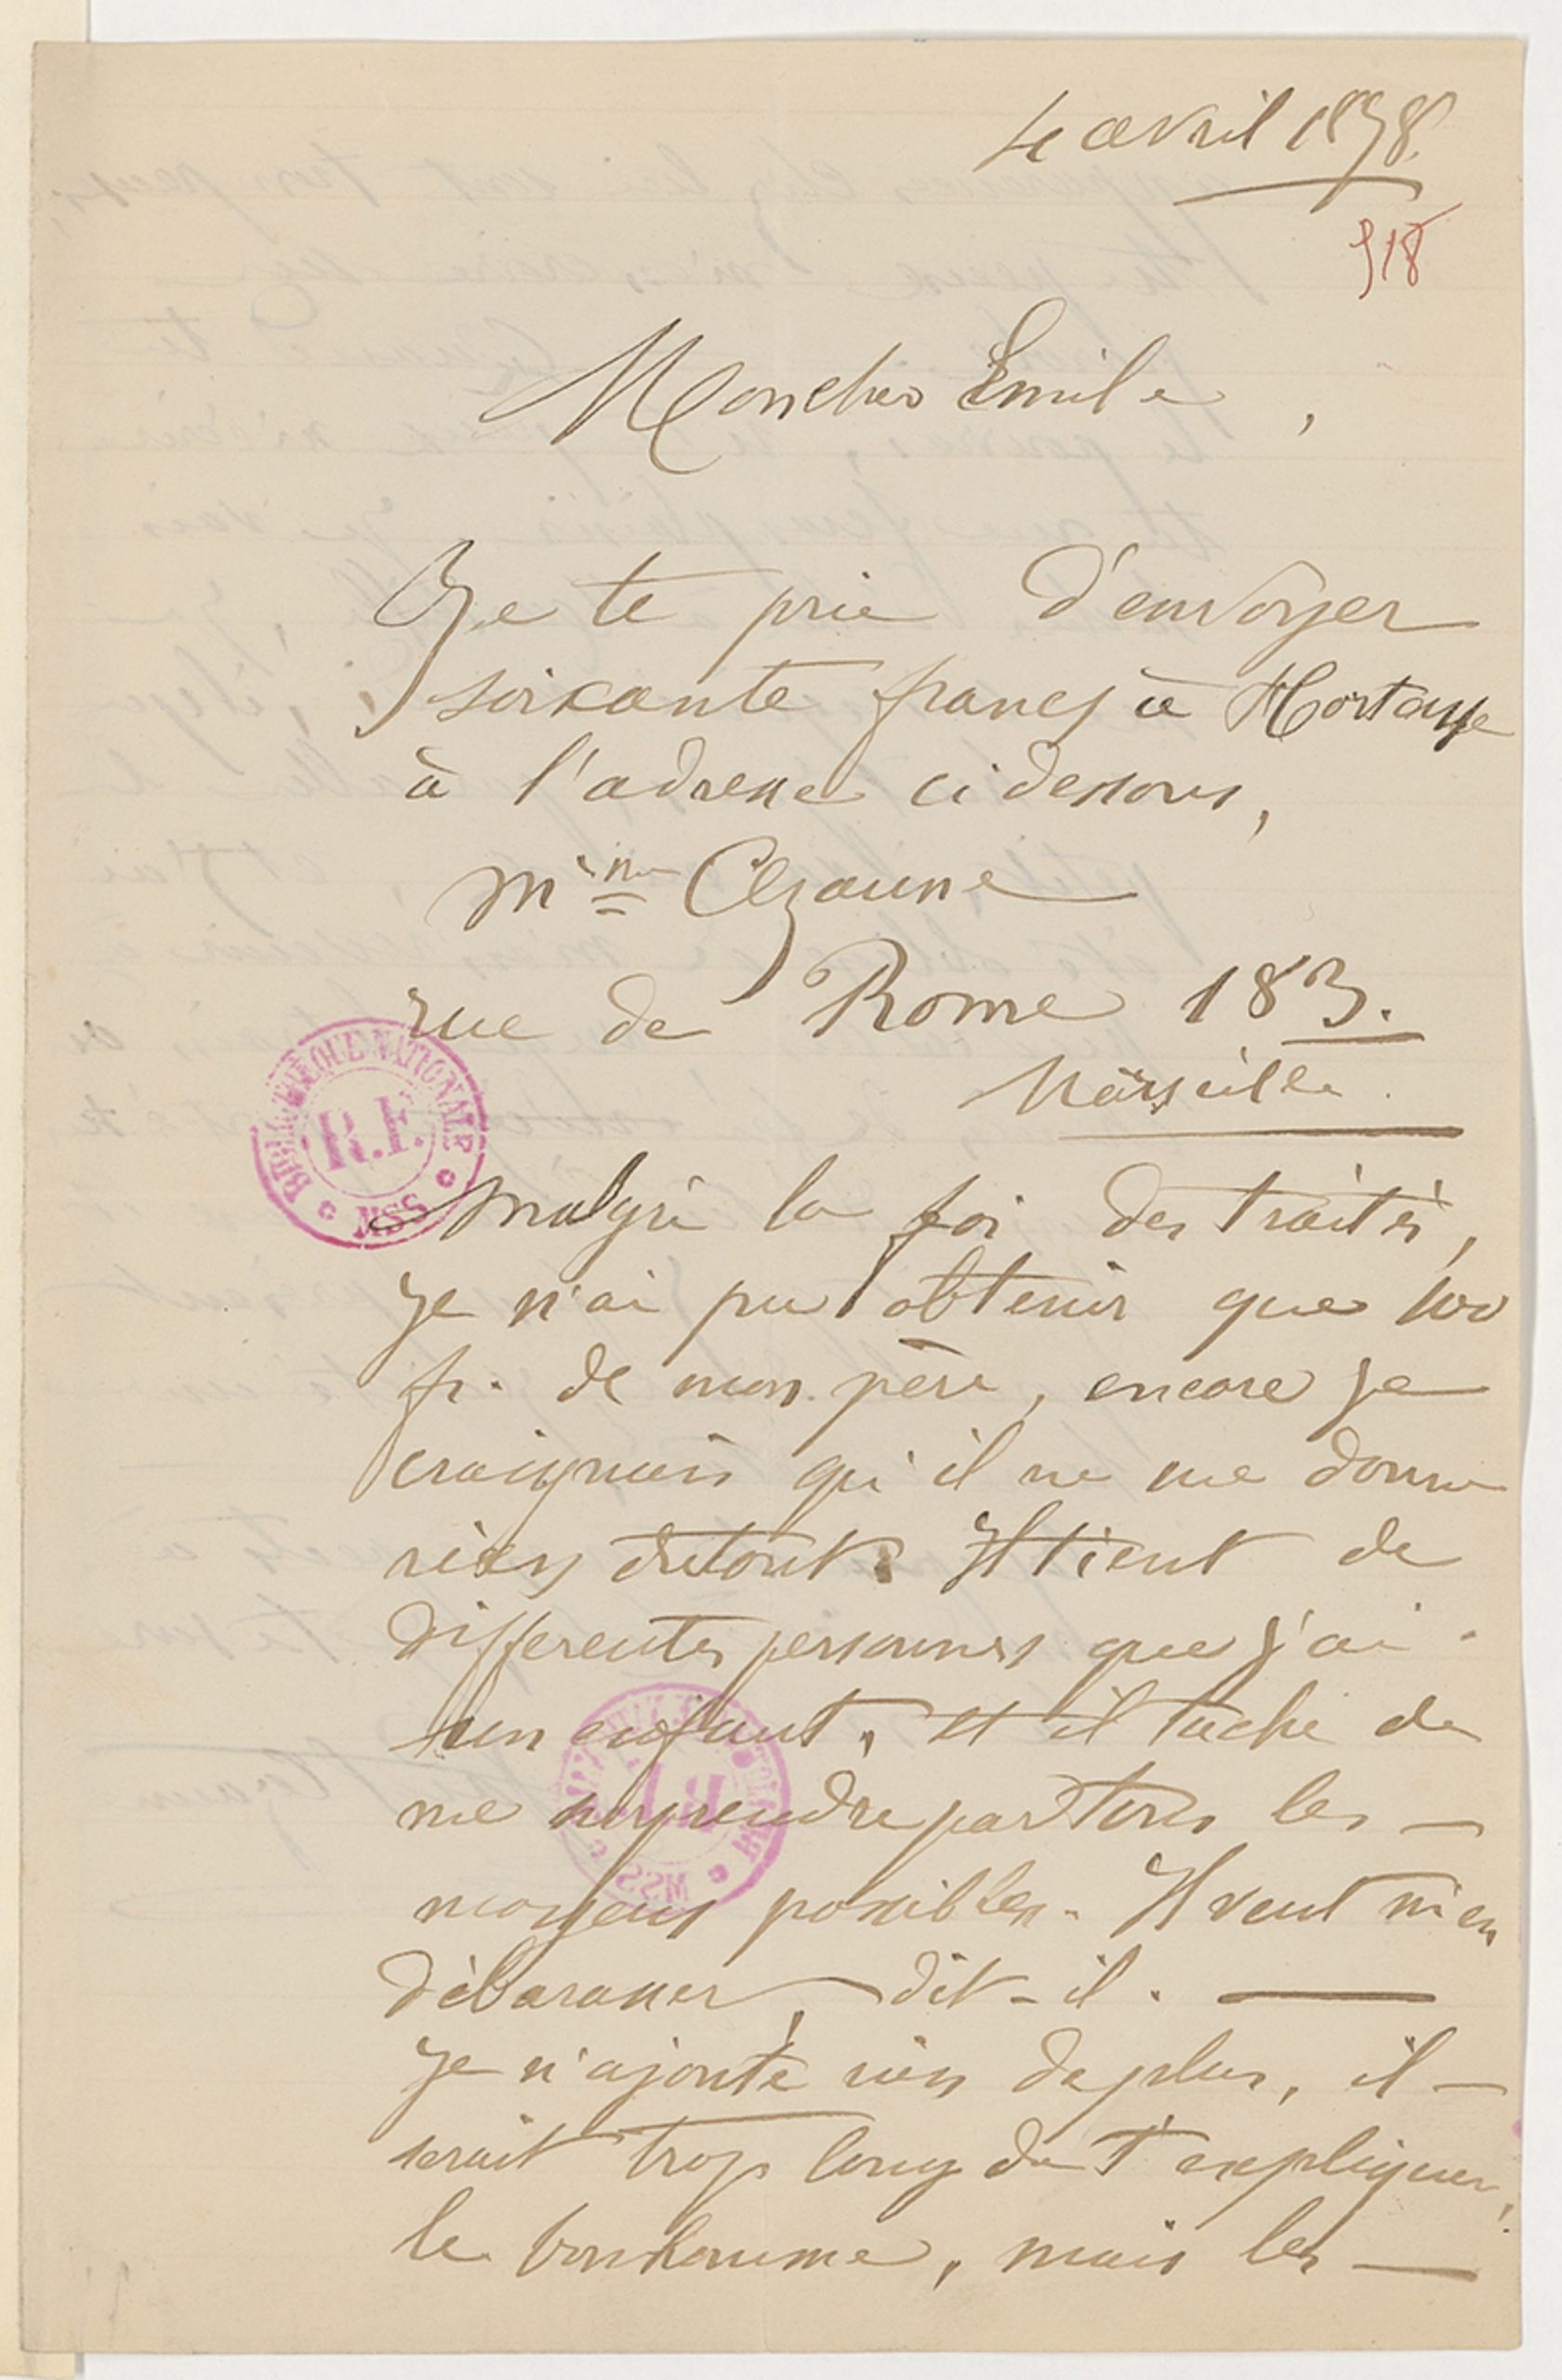 4 avril 1878.
518
Mon cher Emile,
Je te prie d'envoyer
soixante francs à Hortense
à l'adresse ci dessous,
Mme Cézanne
rue de Rome 183.
Marseille.
BIBLIOTHÈQUE NATIONALE
R.F.
MSS
Malgré la foi des traités,
je n'ai pu obtenir que 100
fr. de mon père, encore je
craignais qu'il ne me donne
rien du tout. Il tient de
differentes personnes que j'ai
un enfant, et il tâche de
me surprendre par tous les —
moyens possibles. Il veut m'en
débarasser, dit-il. —
je n'ajoute rien de plus, il —
serait trop long de t'expliquer,
le bonhomme, mais les —